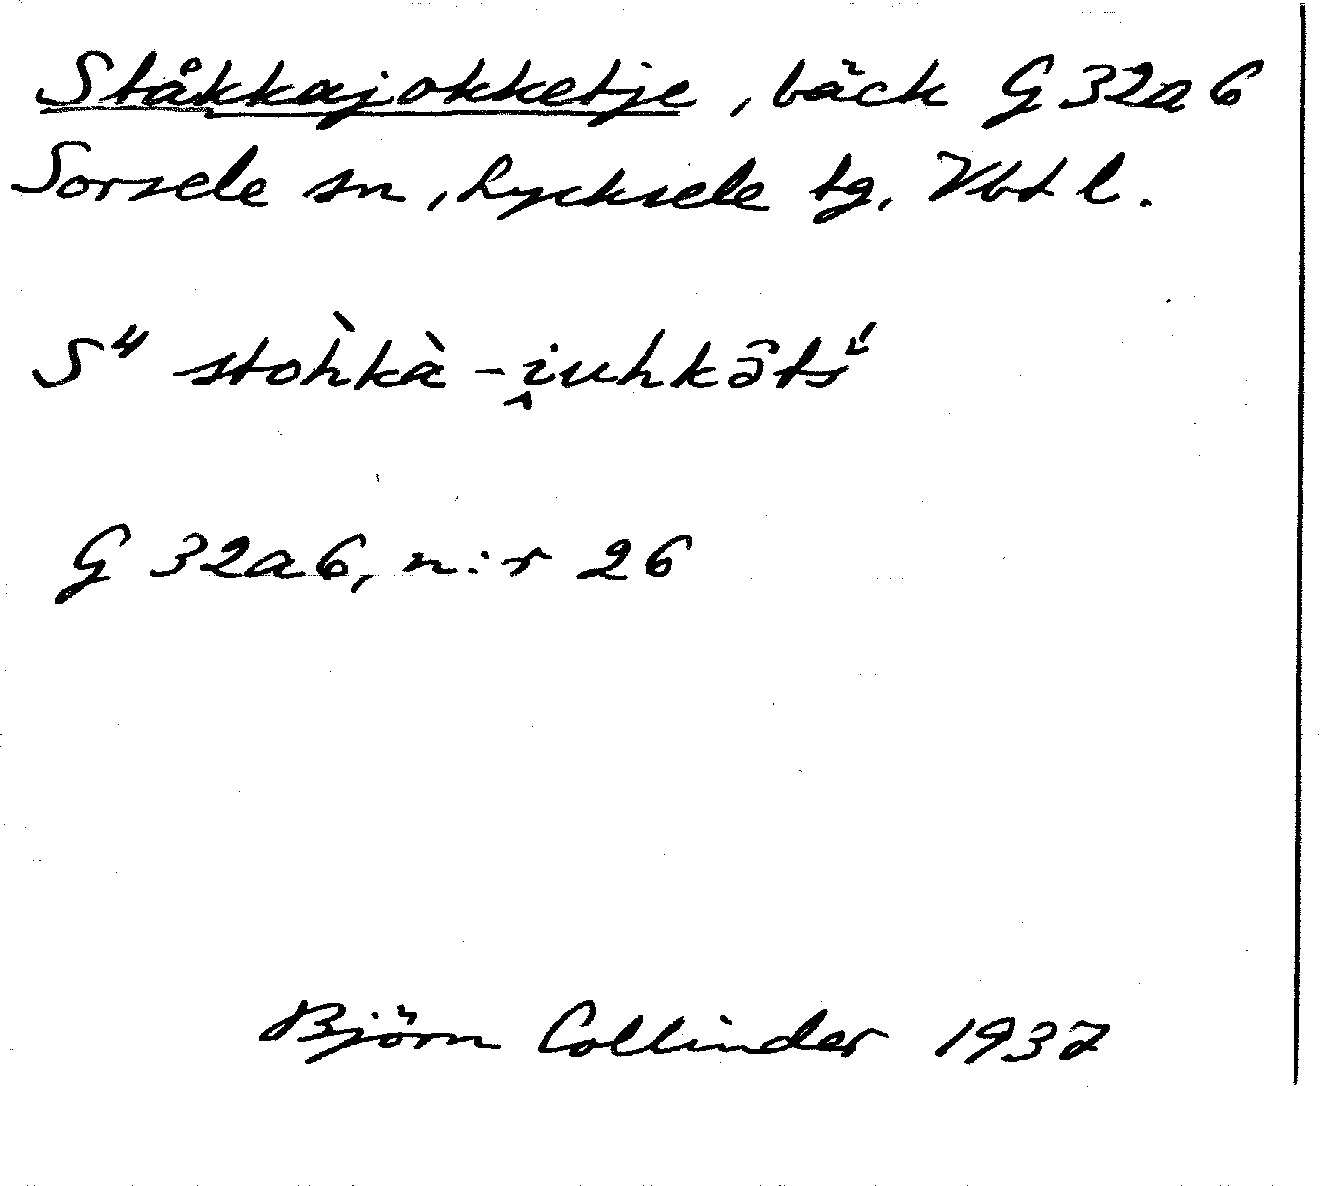 Ståkkajokketje, bäck G 32a 6
Sorsele sn, Lycksele tg. Vbtl.
S" stoh̀kà - i̭uhkə̑ts'
G 32a6, n:r 26
Björn Collinder 1937